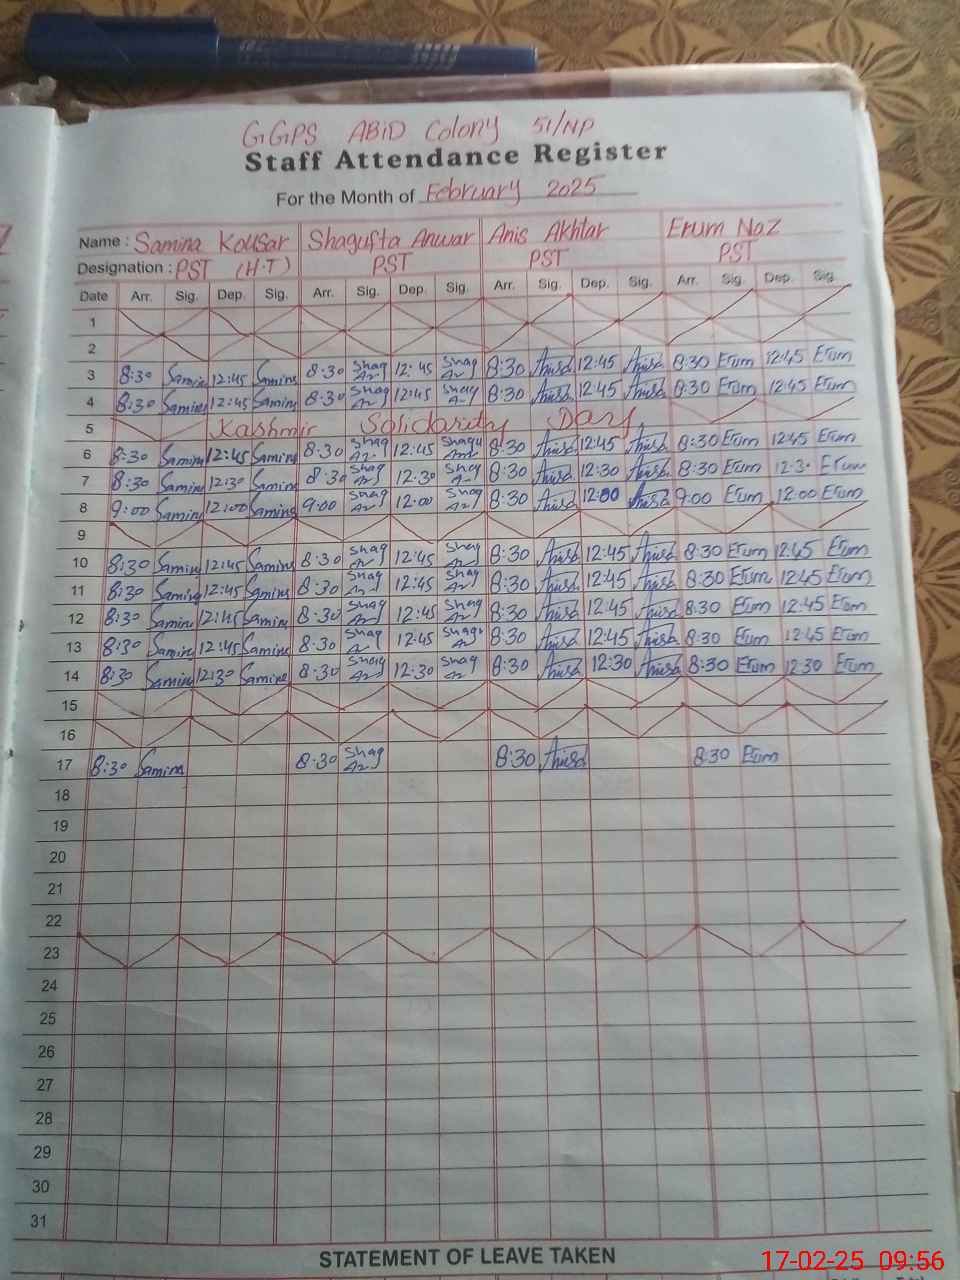 GGPS ABiD Colony 51/NP
Staff Attendance Register
For the Month of February 2025
Name : Samina Kousar Shagufta Anwar Anis Akhtar Erum Naz
Designation : PST (H.T) PST PST PST
Date Arr. Sig. Dep. Sig. Arr. Sig. Dep. Sig. Arr. Sig. Dep. Sig. Arr. Sig. Dep. Sig.
1
2
3 8:30 Samina 12:45 Samina 8:30 Shag 12:45 Shag 8:30 Anisa 12:45 Anisa 8:30 Erum 12:45 Erum
4 8:30 Samina 12:45 Samina 8:30 Shag 12:45 Shag 8:30 Anisa 12:45 Anisa 8:30 Erum 12:45 Erum
5 Kashmir Solidarity Day
6 8:30 Samina 12:45 Samina 8:30 Shag 12:45 Shagu 8:30 Anisa 12:45 Anisa 8:30 Erum 12:45 Erum
7 8:30 Samina 12:30 Samina 8:30 Shag 12:30 Shag 8:30 Anisa 12:30 Anisa 8:30 Erum 12:30 Erum
8 9:00 Samina 12:00 Samina 9:00 Shag 12:00 Shag 8:30 Anisa 12:00 Anisa 9:00 Erum 12:00 Erum
9
10 8:30 Samina 12:45 Samina 8:30 Shag 12:45 Shag 8:30 Anisa 12:45 Anisa 8:30 Erum 12:45 Erum
11 8:30 Samina 12:45 Samina 8:30 Shag 12:45 Shag 8:30 Anisa 12:45 Anisa 8:30 Erum 12:45 Erum
12 8:30 Samina 12:45 Samina 8:30 Shag 12:45 Shag 8:30 Anisa 12:45 Anisa 8:30 Erum 12:45 Erum
13 8:30 Samina 12:45 Samina 8:30 Shag 12:45 Shagu 8:30 Anisa 12:45 Anisa 8:30 Erum 12:45 Erum
14 8:30 Samina 12:30 Samina 8:30 Shag 12:30 Shag 8:30 Anisa 12:30 Anisa 8:30 Erum 12:30 Erum
15
16
17 8:30 Samina 8:30 Shag 8:30 Anisa 8:30 Erum
18
19
20
21
22
23
24
25
26
27
28
29
30
31
STATEMENT OF LEAVE TAKEN
17-02-25 09:56